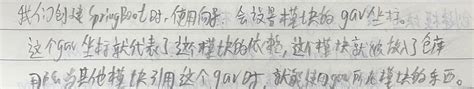 我们创建SpringBoot时，使用向导，会设置模块的gav坐标。
这个gav坐标就代表了这个模块的依赖，这个模块就放入了仓库
当其他模块引用这个gav时，就能使用gav所在模块的东西。